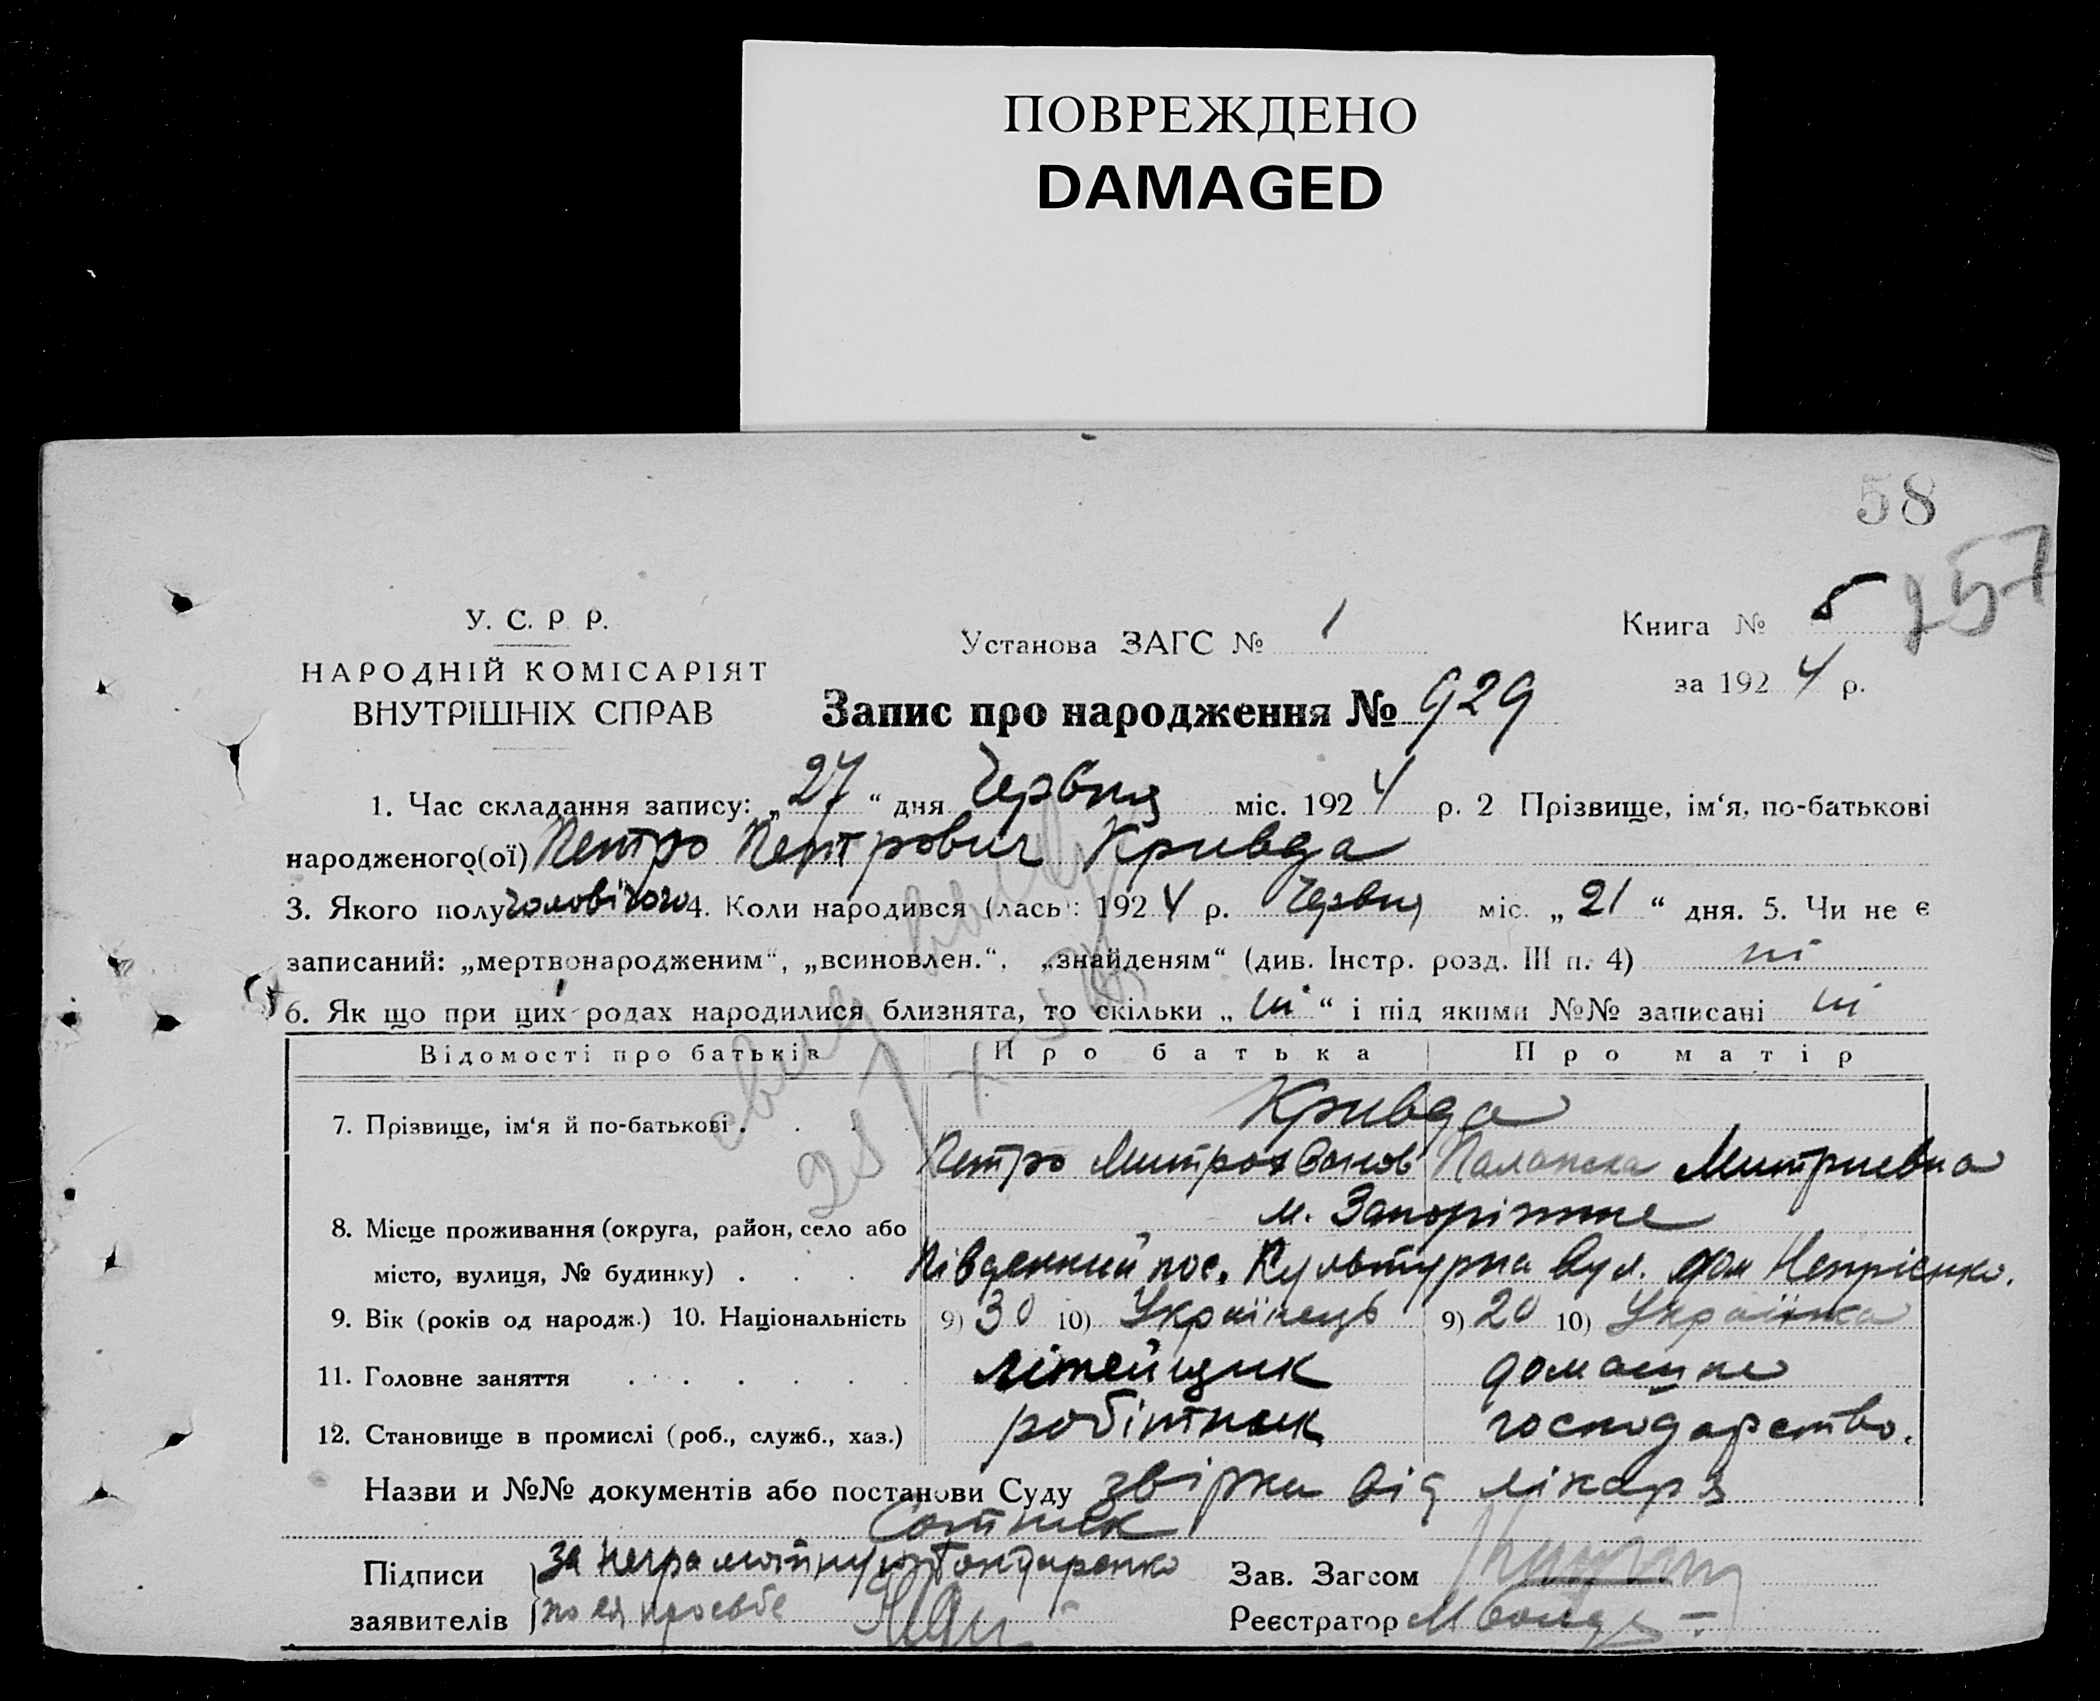 ПОВРЕЖДЕНО
DAMAGED
58
257
У. С. Р. Р.
НАРОДНІЙ КОМІСАРІЯТ
ВНУТРІШНІХ СПРАВ
Установа ЗАГС № 1
Книга № 5
за 1924 р.
Запис про народження № 929
1. Час складання запису: „27“ дня Червня міс. 1924 р. 2 Прізвище, ім‘я, по-батькові
народженого(ої) Петро Петрович Кривда
3. Якого полу чоловічого 4. Коли народився (лась): 1924 р. Червня міс. „21“ дня. 5. Чи не є
записаний: „мертвонародженим“, „всиновлен.“, „знайденям“ (див. Інстр. розд. III п. 4) ні
6. Як що при цих родах народилися близнята, то скільки „ні“ і під якими №№ записані ні
Відомості про батьків Про батька Про матір
7. Прізвище, ім‘я й по-батькові . Кривда
Петро Митрофанов Палажка Митриевна
8. Місце проживання (округа, район, село або м. Запоріжже
місто, вулиця, № будинку) . Південний пос. Культурна вул. дом Непрієнко.
9. Вік (років од народж.) 10. Національність 9) 30 10) Українець 9) 20 10) Українка
11. Головне заняття літейщик домашнє
12. Становище в промислі (роб., служб., хаз.) робітник господарство.
Назви и №№ документів або постанови Суду звірка від лікаря
Сотник
Підписи за неграмотную Гонтаренко Зав. Загсом
заявителів по ея просьбе Реєстратор